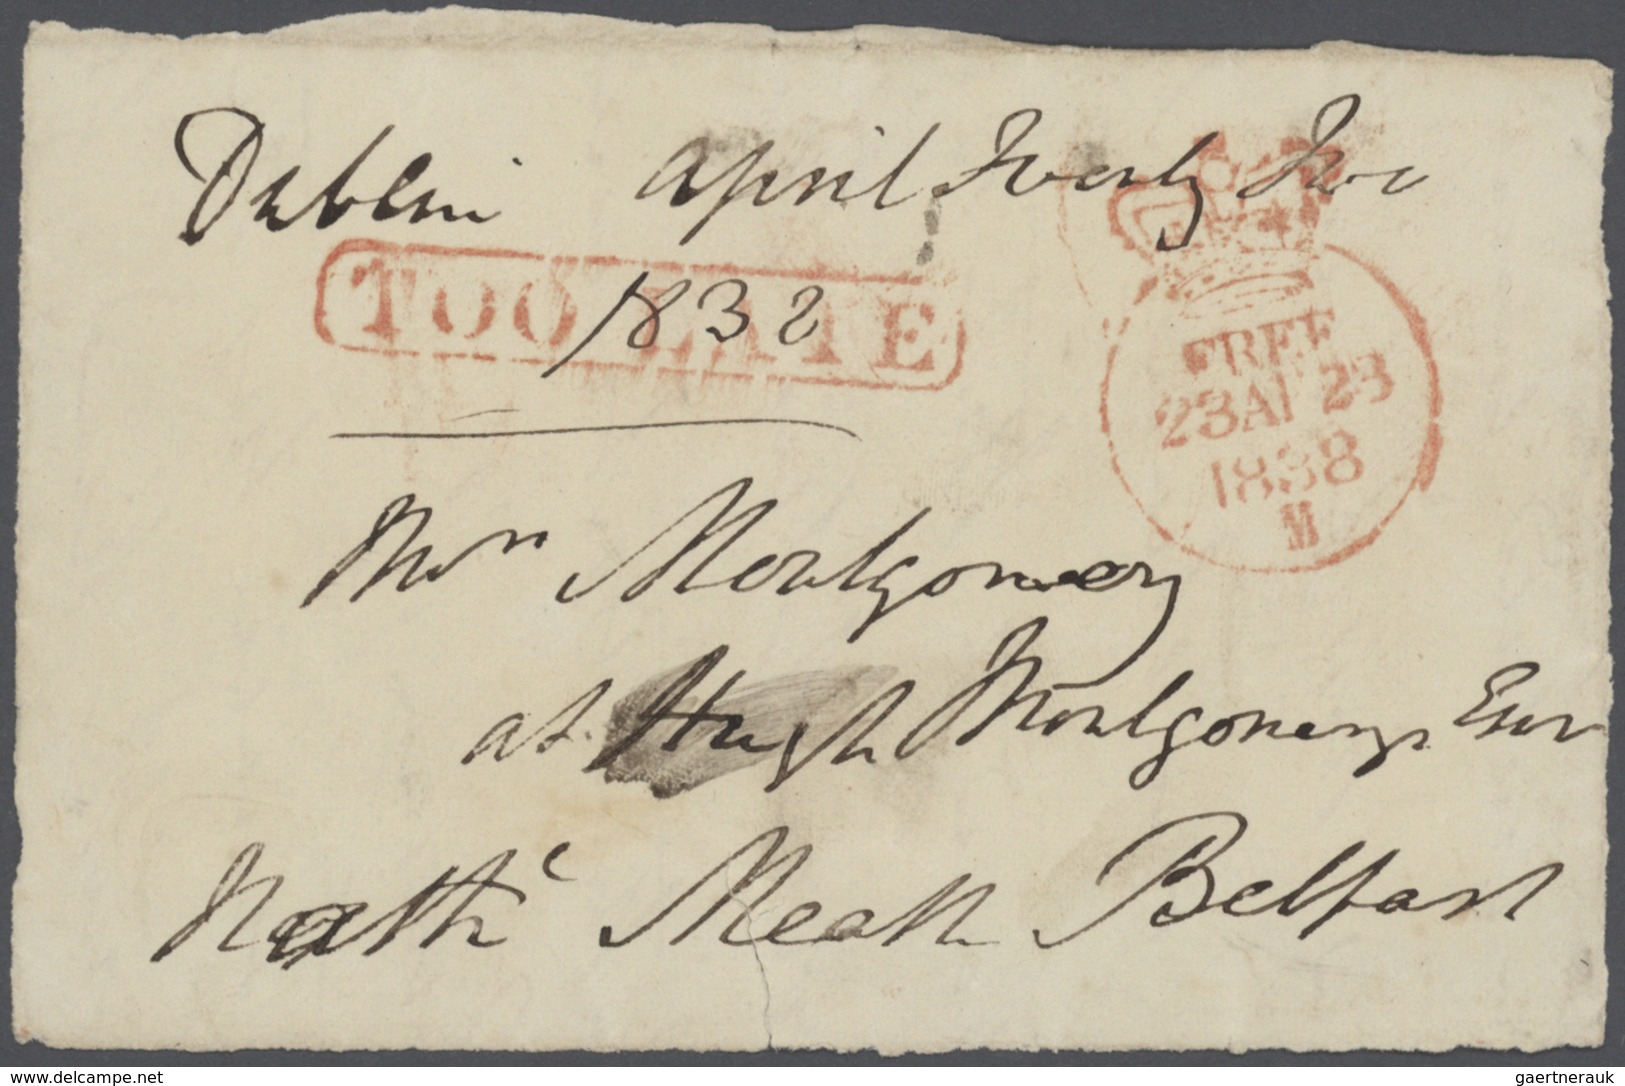 Dublin April Twenty Two
1838
TOO LATE
FREE
23 AP 23
1838
M
Montgomery
at Hugh Montgomery's Esqr
Meath Belfast
www.delcampe.net
gaertnerauk